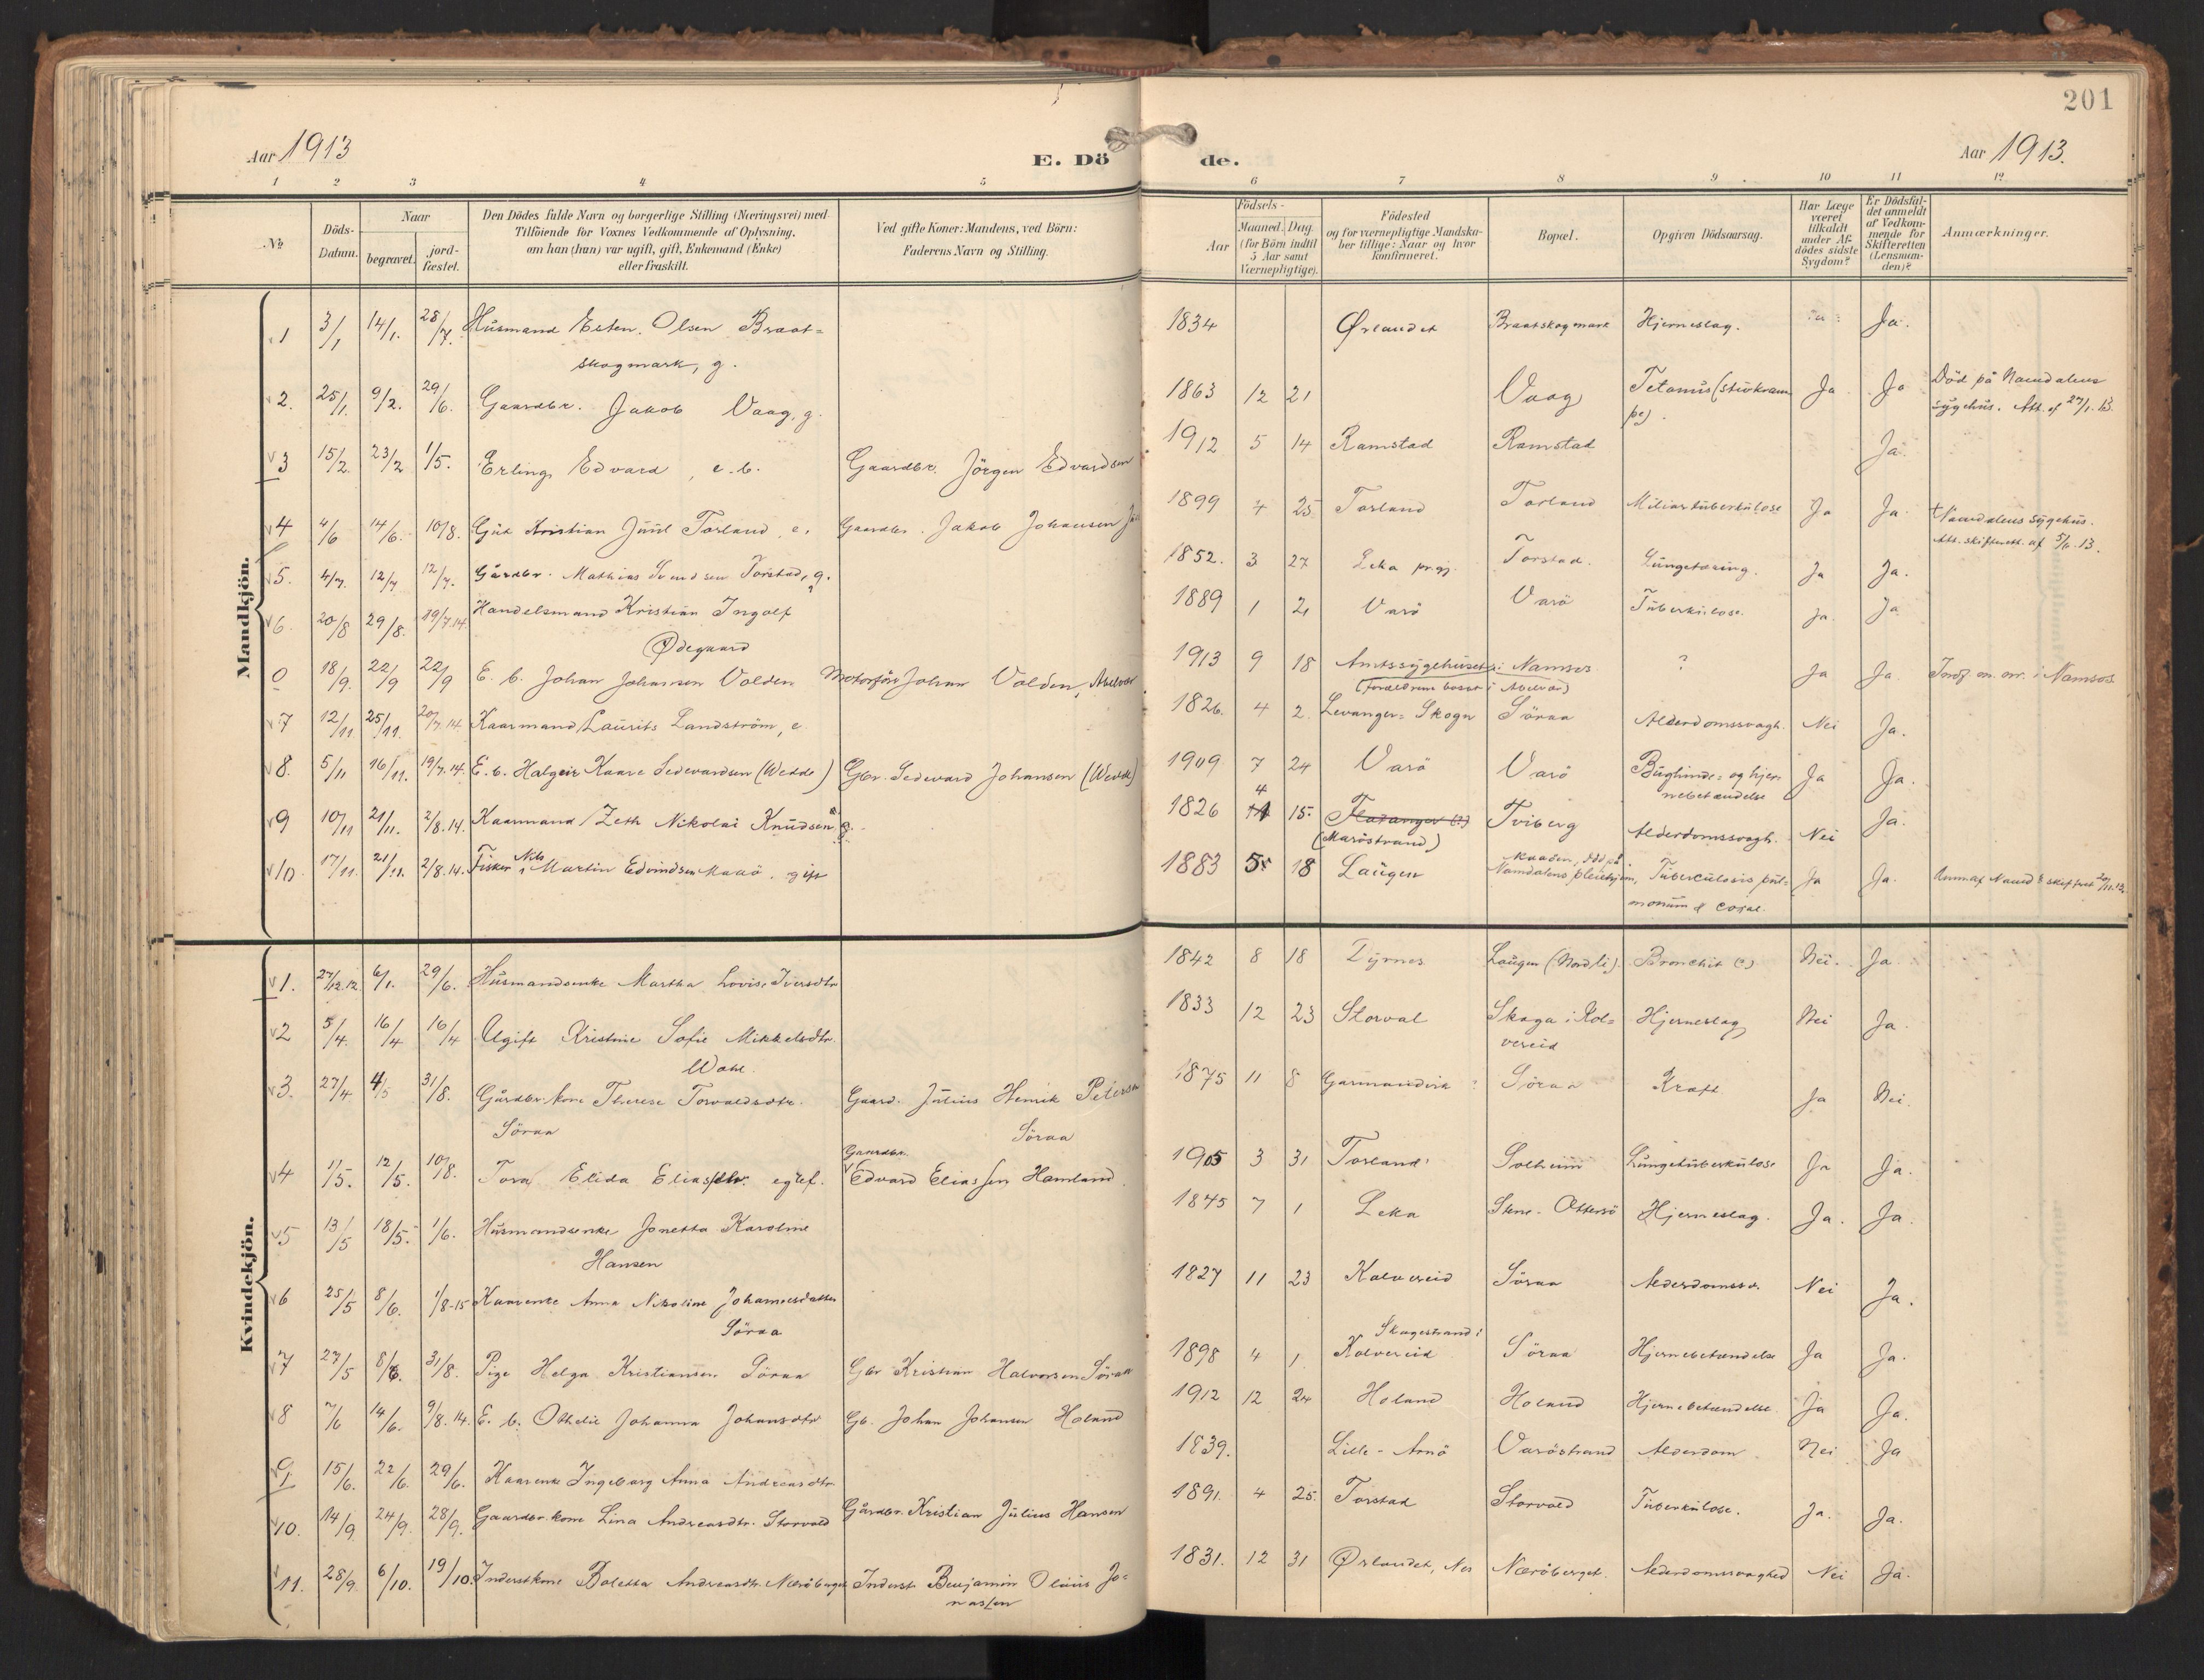 201
Aar 1913
E. Dö de.
Aar 1913.
1 2 3 4 5 6 7 8 9 10 11 12
№
Döds-Datum.
Naar
begravet.
jord-fæstet.
Den Dödes fulde Navn og borgerlige Stilling (Næringsvei) med
Tilföiende for Voxnes Vedkommende af Oplysning,
om han (hun) var ugift, gift, Enkemand (Enke)
eller fraskilt.
Ved gifte Koner: Mandens, ved Börn:
Faderens Navn og Stilling.
Födsels-
Aar
Maaned. Dag.
(for Börn indtil
5 Aar samt
Værnepligtige).
Födested
og for værnepligtige Mandska-
ber tillige: Naar og hvor
konfirmeret.
Bopæl.
Opgiven Dödsaarsag.
Har Læge
været
tilkaldt
under Af-
dödes sidste
Sygdom?
Er Dödsfal-
det anmeldt
af Vedkom-
mende for
Skifteretten
(Lensman-
den)?
Anmærkninger.
Mandkjön.
1 3/1 14/1. 28/7. Husmand Esten Olsen Braat= 1834 Ørlandet Braatskogmark Hjerneslag. Ja.
skogmark, g.
2. 25/1. 9/2. 29/6. Gaardbr. Jakob Vaag, g. 1863 12 21 Vaag Tetanus (stivkram Ja Ja Död på Namdalens
pe). sygehus. Att. af 27/1.13.
3 15/2. 23/2 1/5. Erling Edvard, e.b. Gaardbr. Jörgen Edvardsen 1912 5 14 Ramstad Ramstad Ja.
4 4/6 14/6. 10/8. Gut Kristian Juul Torland, e. Gaardbr. Jakob Johansen 1899 4 25 Torland Torland Miliærtuberkulose Ja Ja. Namdalens sygehus.
Att. skifterett. af 5/6.13.
5. 4/7. 12/7 12/7. Gårdbr. Mathias Svendsen Torstad, g. 1852. 3 27 Leka pr.gj. Torstad. Lungetæring. Ja Ja.
6. 20/8 29/8. 19/7.14. Handelsmand Kristian Ingolf 1889 1 2 Varö Varö Tuberkulose. Ja. Ja
Ødegaard
0 18/9. 22/9 22/9 E. b. Johan Johansen Volden Motorförer Johan Volden, Abelvær 1913 9 18 Amtssygehuset i Namsos ? Ja Ja. Indf. m. nr. i Namsos
(forældrene bosat i Abelvær)
7 12/11 25/11. 20/7.14. Kaarmand Laurits Landström, e. 1826. 4 2. Levanger= Skogn Söraa Alderdomssvagh. Nei Ja.
8. 5/11 16/11. 19/7.14. E. b. Halgeir Kaare Sedevardsen (Wedde) Gbr. Sedevard Johansen (Wedde) 1909 7 24 Varö Varö Bughinde= og hjer= Ja Ja.
nebetændelse
9 10/11 21/11. 2/8.14. Kaarmand Zeth Nikolai Knudsen 1826 4 15. Flatanger (?) Tviberg Alderdomssvagh. Nei Ja.
(Maröstrand)
10 17/11. 21/11. 2/8.14. Fisker Nils Martin Edvindsen Maaö, gift 1883 5. 18 Laugen Maaöen, död på
Namdalens pleiehjem, Tuberculosis pul= Ja Ja.
monum &
Kvindekjön.
1. 27/12.12. 6/1. 29/6. Husmandsenke Martha Lovise Iversdtr 1842 8 18 Dyrnes Laugen (Nordli). Bronchit (?) Nei. Ja
2 5/4. 16/4 16/4 Ugift Kristine Sofie Mikkelsdtr. 1833 12 23 Storval Skaga i Kol= Hjerneslag Nei Ja.
vereid
3. 27/4 4/5 31/8. Gårdbr.kone Therese Torvaldsdtr. Gaard. Julius Henrik Petersen 1875 11 8 Garmandvik Söraa Kræft Ja Nei.
Söraa Söraa
4 1/5. 12/5. 10/8. Tora Elida Eliasdtr. Gaardbr. Edvard Eliassen Hamland. 1905 3 31 Torland Solheim Lungetuberkulose Ja Ja.
5 13/5 18/5. 1/6. Husmandsenke Jonetta Karoline 1845 7 1 Leka Stene-Ottersö Hjerneslag. Ja. Ja.
Hansen
6 25/5 8/6. 1/8-15 Kaarenke Anna Nikoline Johannesdatter 1827 11 23 Kolvereid Söraa Alderdomssv. Nei Ja.
Söraa
7 27/5 8/6. 31/8. Pige Helga Kristiansen Söraa Gbr Kristian Halvorsen Söraa 1898 4 1. Skagestrand i Kolvereid Söraa Hjernebetændelse Ja Ja.
8 7/6 14/6. 9/8.14. E. b. Othelie Johanna Johansdtr Gb. Johan Johansen Holand 1912 12 24 Holand Holand Hjernebetændelse. Ja Ja.
9 15/6. 22/6. 29/6. Kaarenke Ingeborg Anna Andreasdtr. 1839. Lille-Arnö Varöstrand Alderdom Nei Ja
10. 14/9. 24/9. 28/9. Gaardbr.kone Lina Andreasdtr. Storvold Gårdbr. Kristian Julius Hansen 1891. 4 25. Torstad Storvold Tuberkulose. Ja. Ja.
11. 28/9. 6/10. 19/10. Inderstkone Boletta Andreasdtr. Næröberget Inderst Benjamin Olaus Jo= 1831. 12 31 Ørlandet, Nes Næröberget. Alderdomssvaghed Nei Ja.
nassen